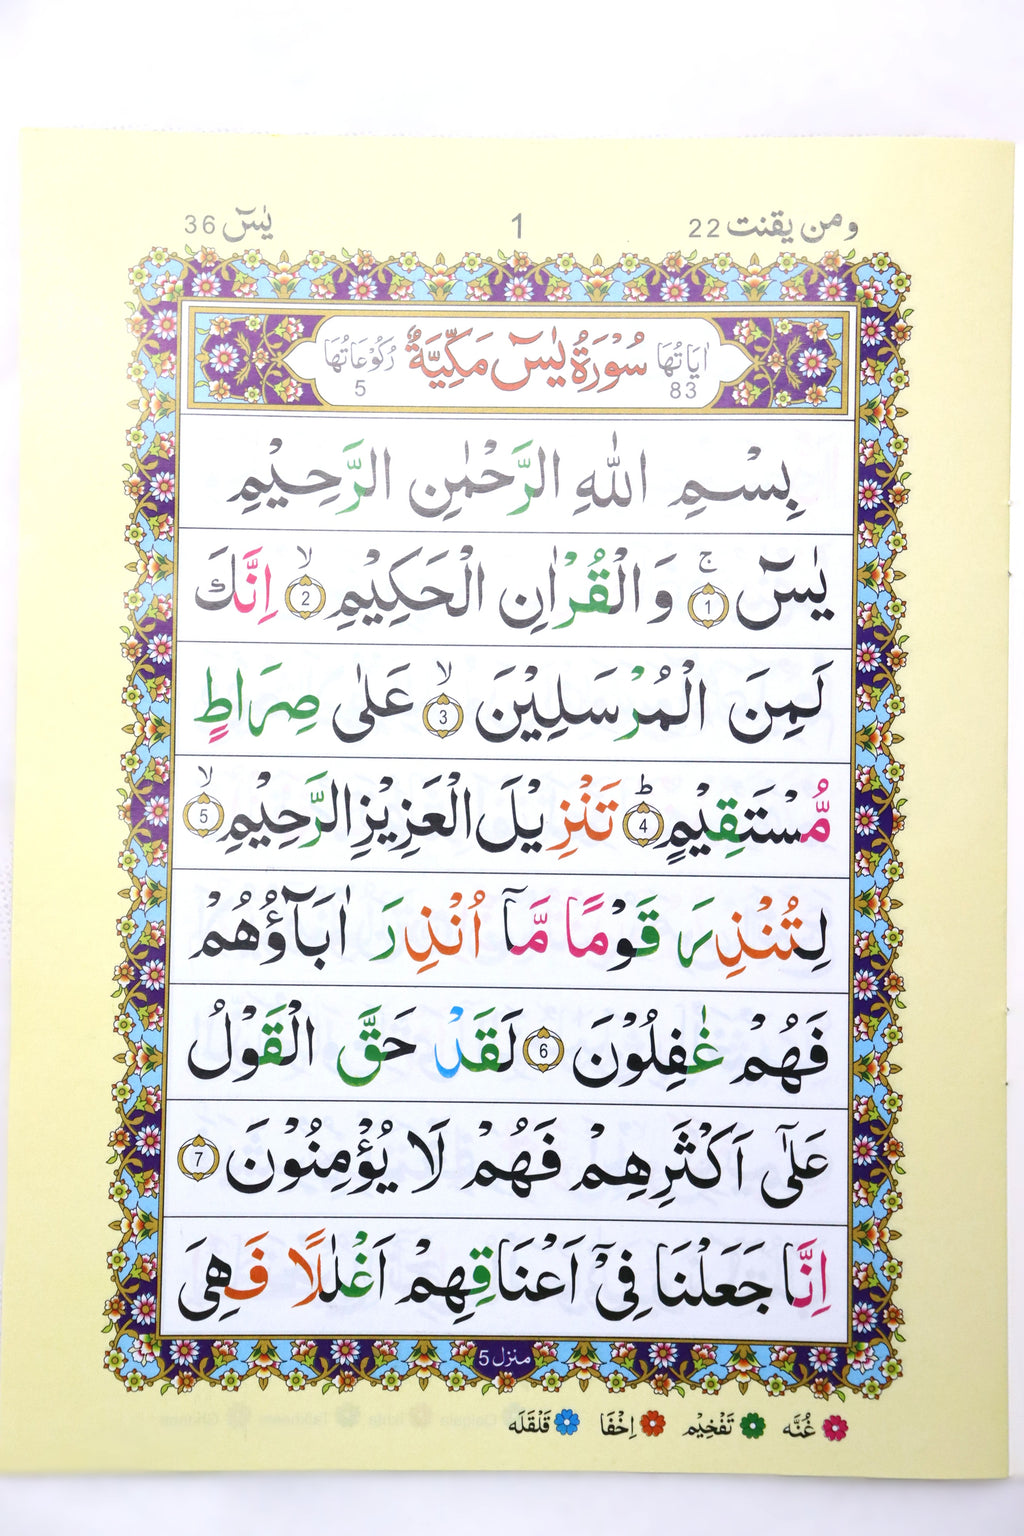 ومن یقنت 22 1 یٰسٓ 36
اٰیَاتُهَا 83 سُوْرَةُ یٰسٓ مَكِّیَّةٌ رُكُوْعَاتُهَا 5
بِسْمِ اللّٰهِ الرَّحْمٰنِ الرَّحِیْمِ
یٰسٓ ۚ ﴿1﴾ وَالْقُرْاٰنِ الْحَكِیْمِ ۙ ﴿2﴾ اِنَّكَ
لَمِنَ الْمُرْسَلِیْنَ ۙ ﴿3﴾ عَلٰی صِرَاطٍ
مُّسْتَقِیْمٍ ؕ ﴿4﴾ تَنْزِیْلَ الْعَزِیْزِ الرَّحِیْمِ ۙ ﴿5﴾
لِتُنْذِرَ قَوْمًا مَّاۤ اُنْذِرَ اٰبَآؤُهُمْ
فَهُمْ غٰفِلُوْنَ ﴿6﴾ لَقَدْ حَقَّ الْقَوْلُ
عَلٰۤی اَكْثَرِهِمْ فَهُمْ لَا یُؤْمِنُوْنَ ﴿7﴾
اِنَّا جَعَلْنَا فِیْۤ اَعْنَاقِهِمْ اَغْلٰلًا فَهِیَ
منزل 5
غُنَّه تَفْخِیْم اِخْفَا قَلْقَلَه